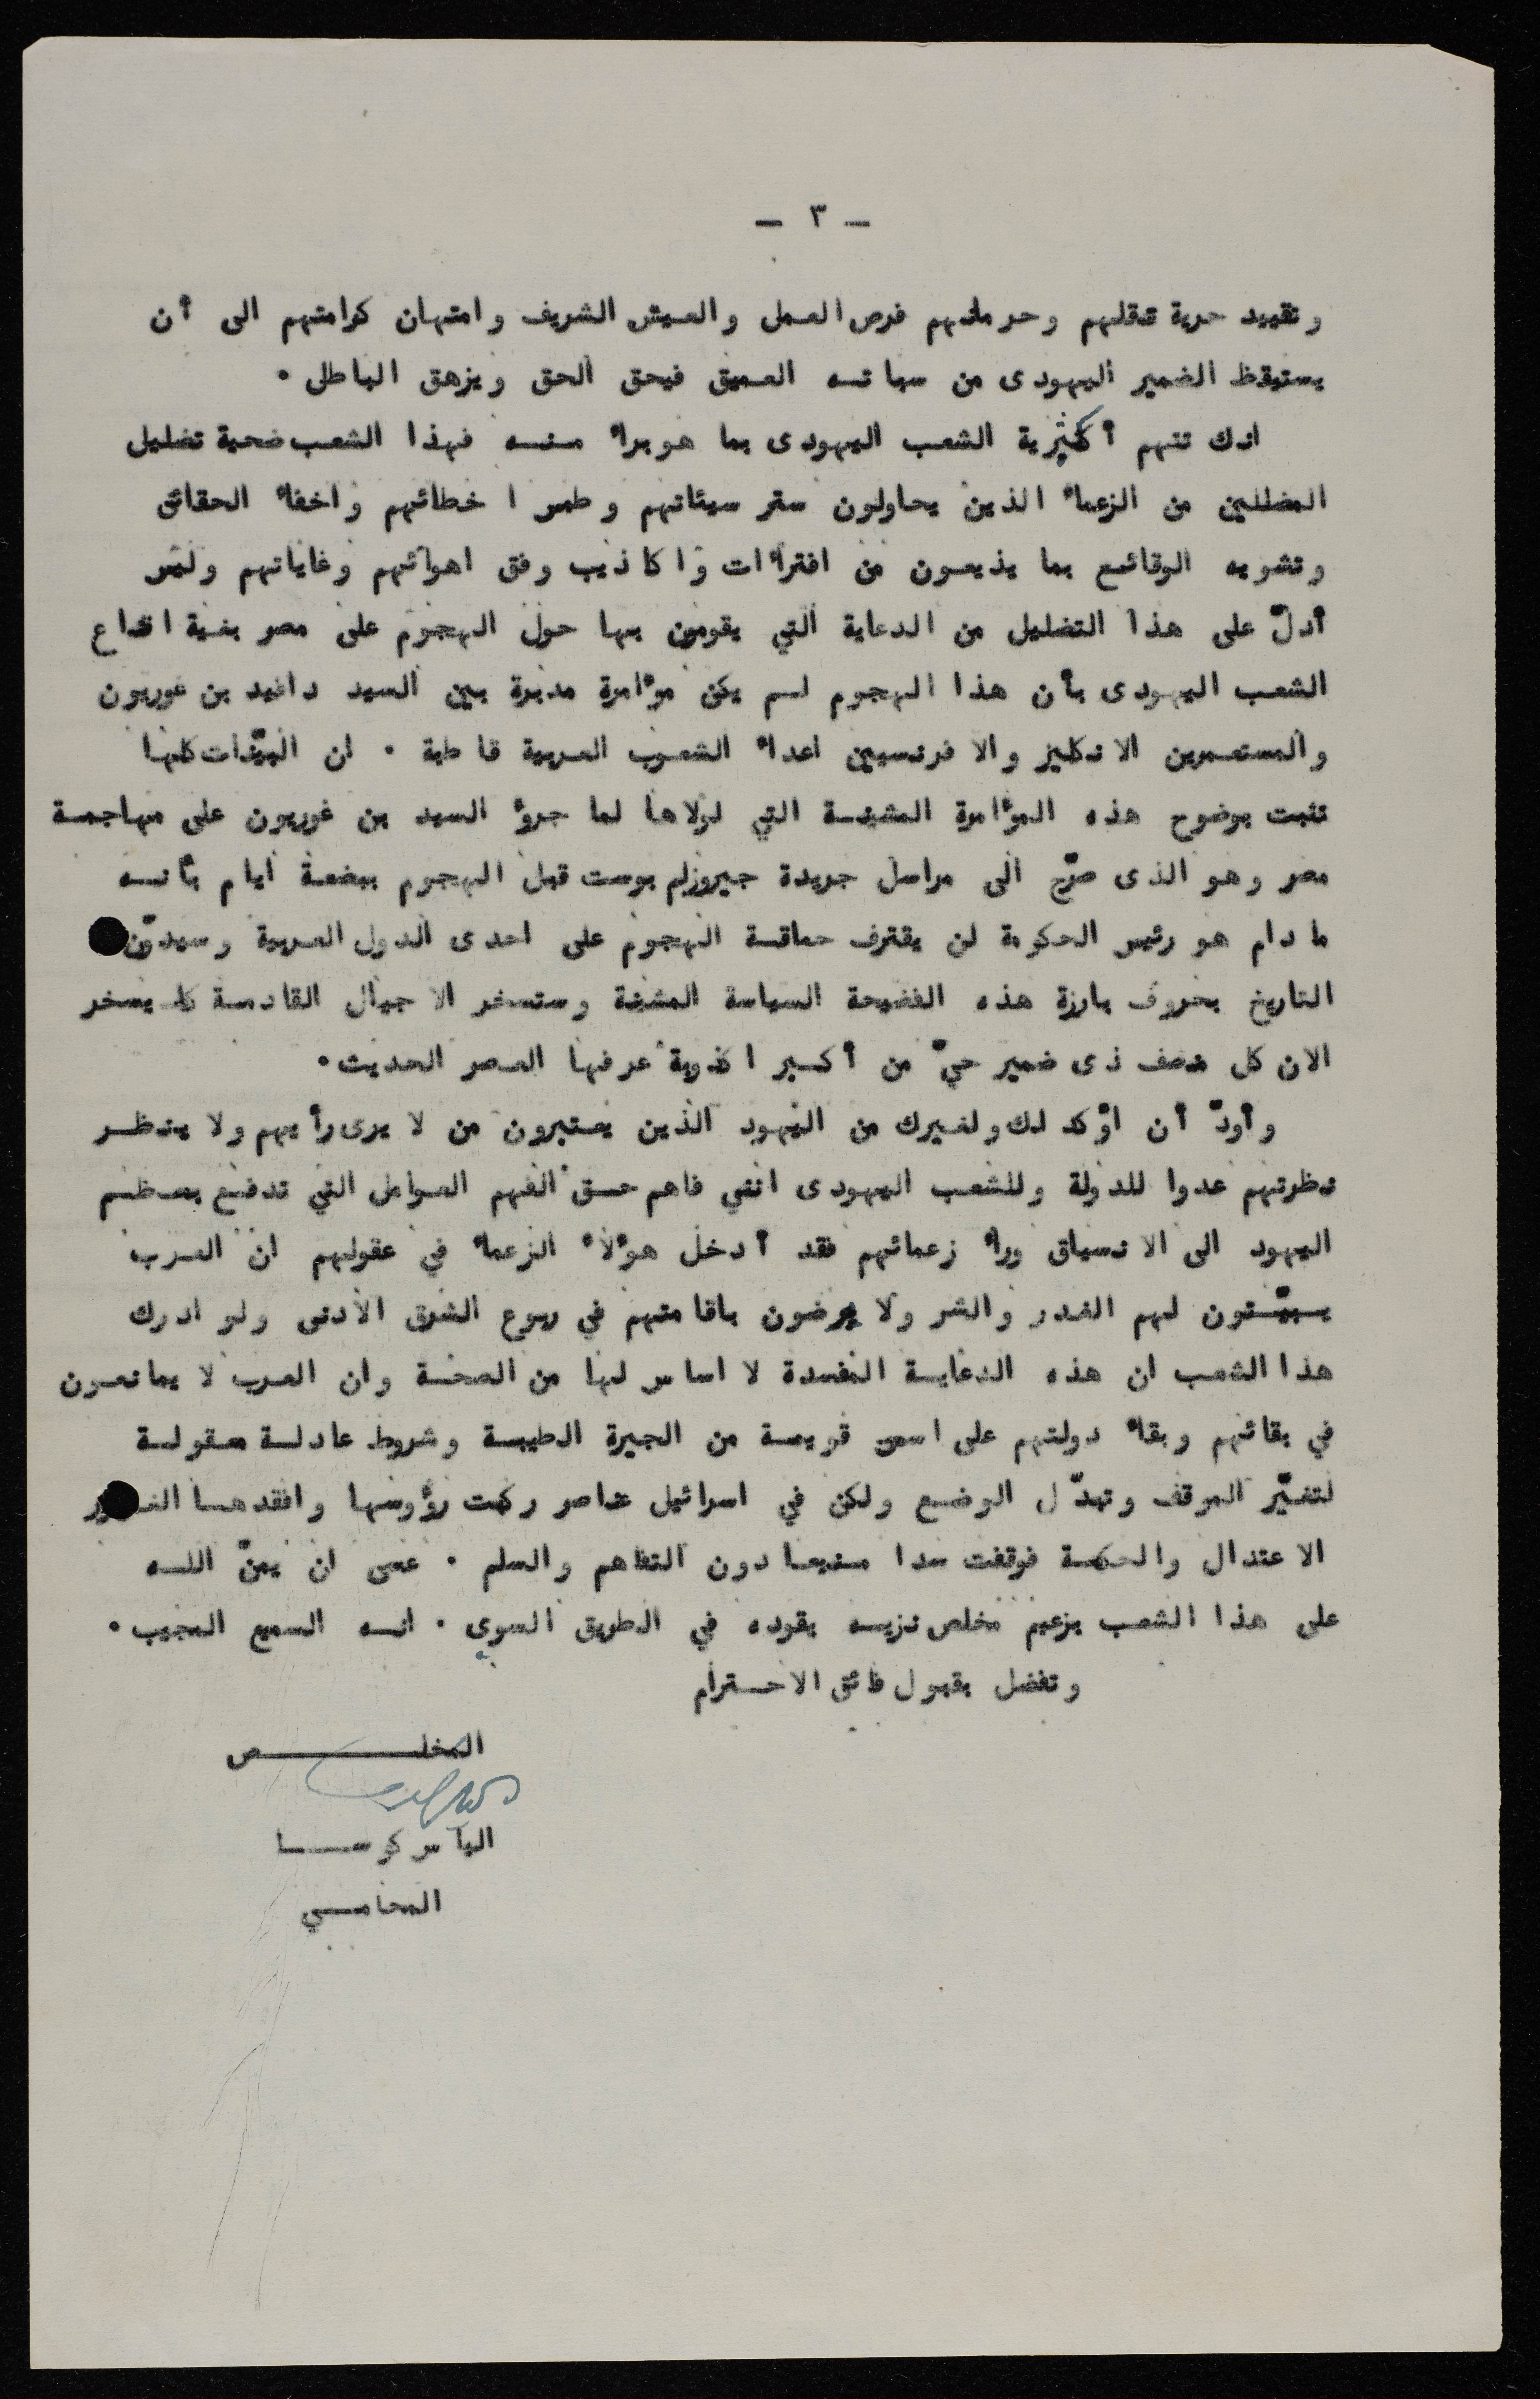 — ٣ —
وتقييد حرية تنقلهم وحرمانهم فرص العمل والعيش الشريف وامتهان كرامتهم الى أن
يستيقظ الضمير اليهودى من سباتـه العميق فيحق الحق ويزهق الباطل ٠
انك تتهم أكثرية الشعب اليهودى بما هو براء منـه فهذا الشعب ضحية تضليل
المضللين من الزعماء الذين يحاولون ستر سيئاتهم وطمس اخطائهم واخفاء الحقائق
وتشويه الوقائع بما يذيعون من افتراءات واكاذيب وفق اهوائهم وغاياتهم وليس
أدلّ على هذا التضليل من الدعاية التي يقومون بها حول الهجوم على مصر بغية اقناع
الشعب اليهودى بأن هذا الهجوم لم يكن مؤامرة مدبرة بين السيد دافيد بن غوريون
والمستعمرين الانكليز والافرنسيين اعداء الشعوب العربية قاطبة ٠ ان البيّنات كلها
تثبت بوضوح هذه المؤامرة المشينة التي لولاها لما جرؤ السيد بن غوريون على مهاجمة
مصر وهو الذى صرّح الى مراسل جريدة جيروزلم بوست قبل الهجوم ببضعة ايام بأنـه
ما دام هو رئيس الحكومة لن يقترف حماقة الهجوم على احدى الدول العربية وسيدوّن
التاريخ بحروف بارزة هذه الفضيحة السياسة المشينة وستسخر الاجيال القادمة كما يسخر
الان كل منصف ذى ضمير حيّ من أكبر اكذوبة عرفها العصر الحديث٠
وأودّ أن اؤكد لك ولغيرك من اليهود الذين يعتبرون من لا يرى رأيهم ولا ينظر
نظرتهم عدوا للدولة وللشعب اليهودى انني فاهم حق الفهم العوامل التي تدفع بمعظم
اليهود الى الانسياق وراء زعمائهم فقد أدخل هؤلاء الزعماء في عقولهم ان العرب
يبيّتون لهم الغدر والشر ولا يرضون باقامتهم في ربوع الشرق الأدنى ولو ادرك
هذا الشعب ان هذه الدعاية المفسدة لا اساس لها من الصحة وان العرب لا يمانعون
في بقائهم وبقاء دولتهم على اسس قويمة من الجيرة الطيبة وشروط عادلة معقولة
لتغيّر الموقف وتبدّل الوضع ولكن في اسرائيل عناصر ركبت رؤوسها وافقدهـا الغرور
الاعتدال والحكمة فوقفت سدا منيعا دون التفاهم والسلم ٠ عسى ان يمنّ اللـه
على هذا الشعب بزعيم مخلص نزيـه يقوده في الطريق السوي ٠ انـه السميع المجيب ٠
وتفضل بقبول فائق الاحترام
المخلــــص
الياس كوســـا
المحامـي